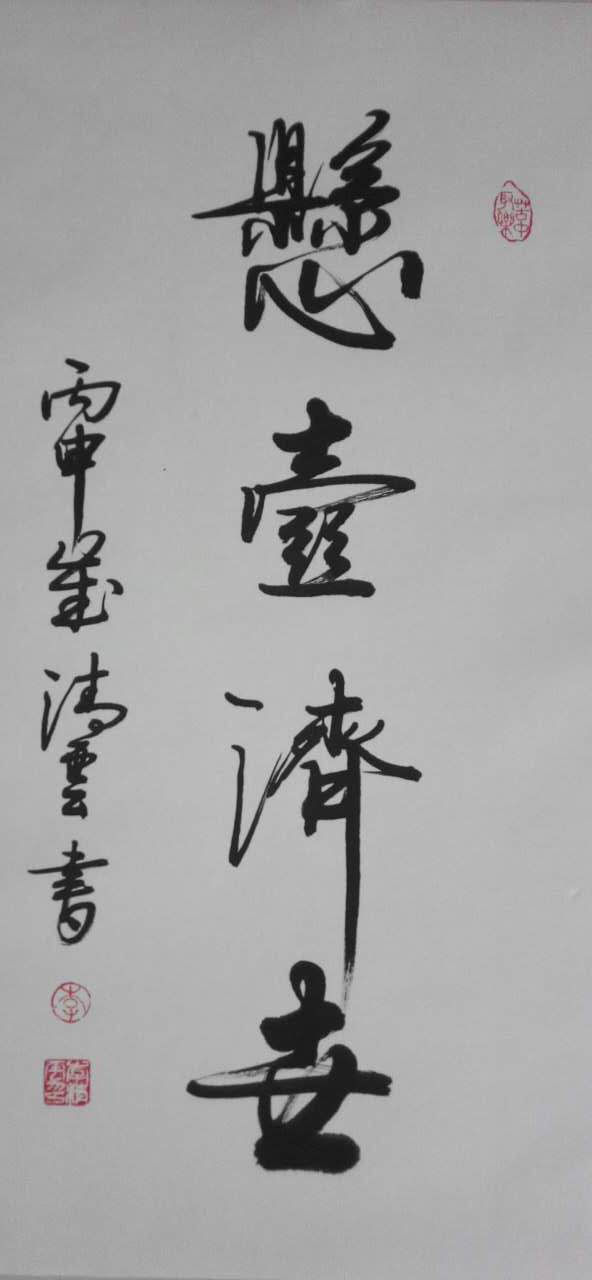 懸壺濟世
丙申歲清雲書
李